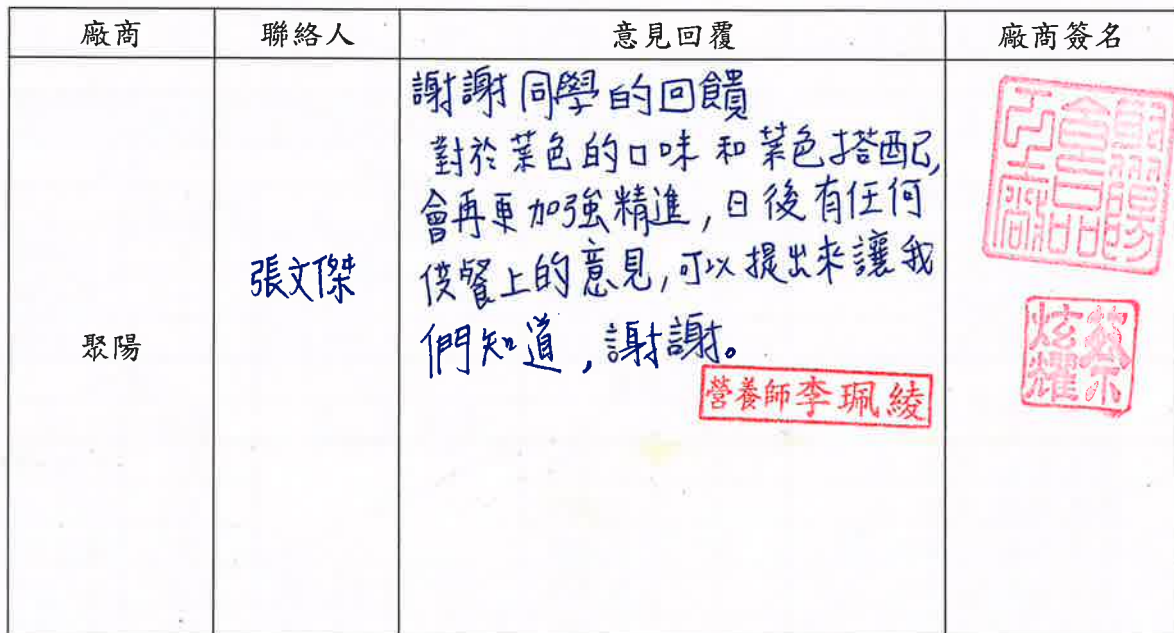 廠商 聯絡人 意見回覆 廠商簽名
聚陽
張文傑
謝謝同學的回饋
對於菜色的口味和菜色搭配,
會再更加強精進,日後有任何
供餐上的意見,可以提出來讓我
們知道,謝謝。
營養師李珮綾
聚陽食品工廠
蔡炫耀